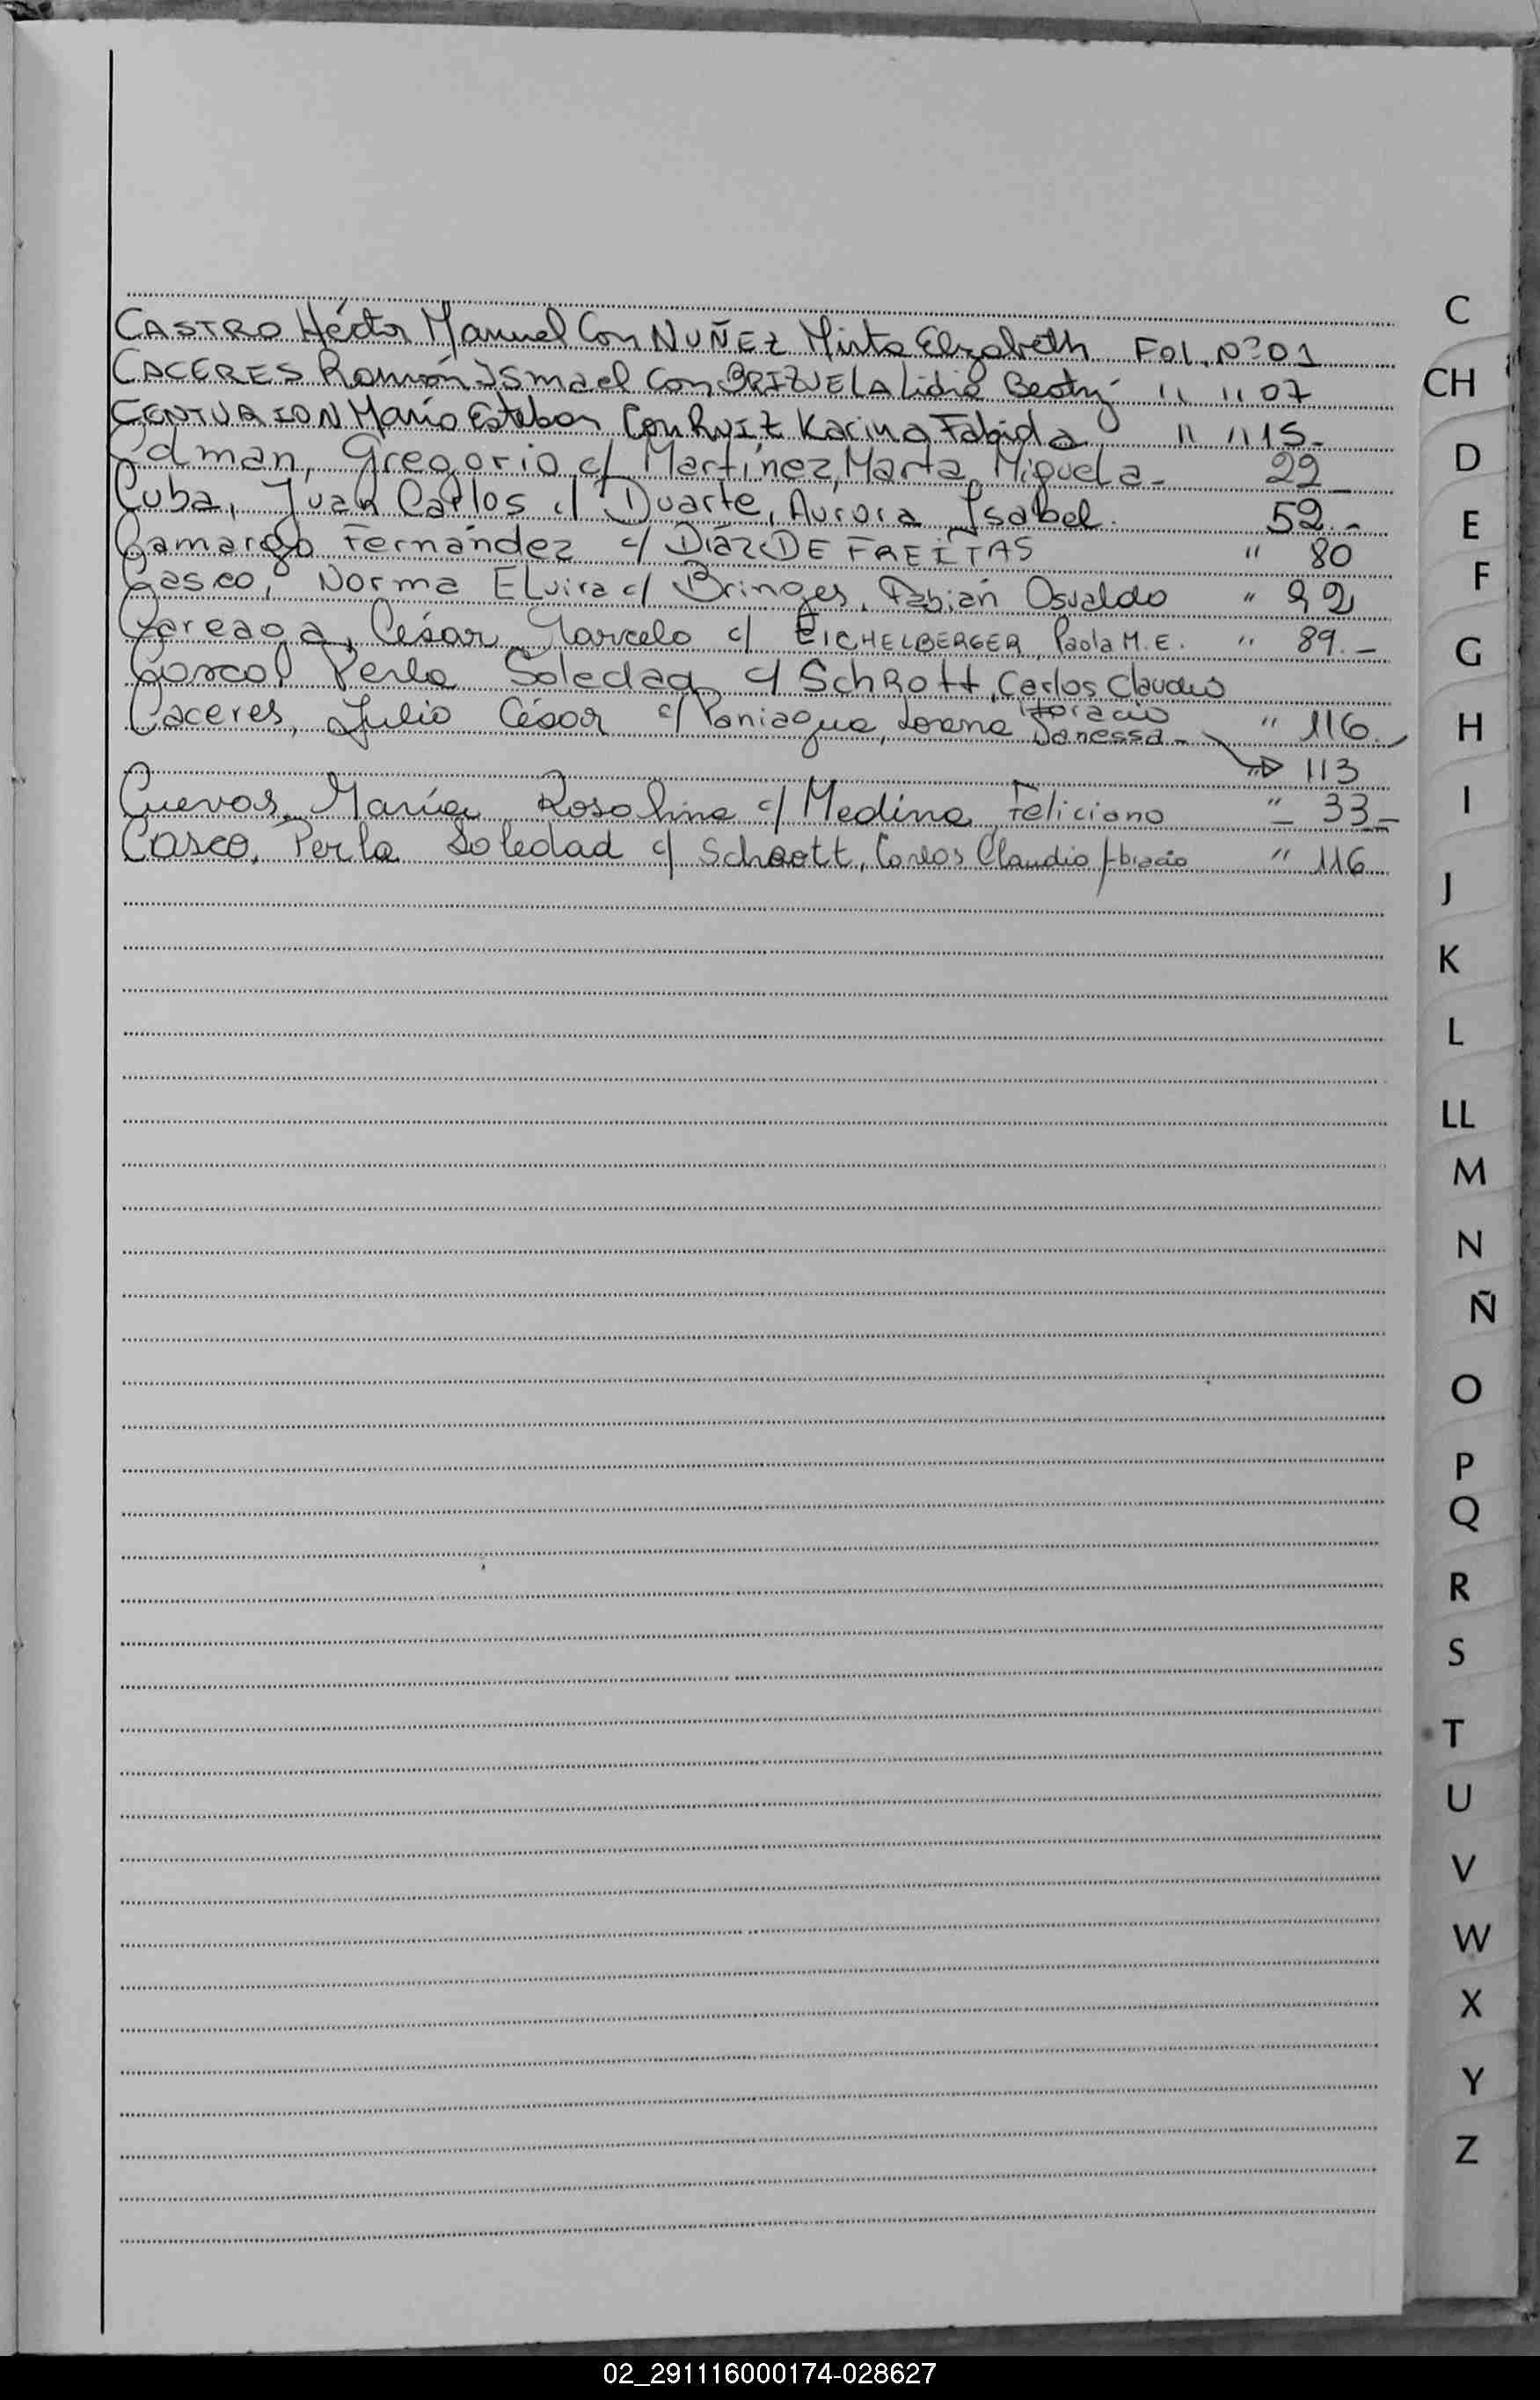 CASTRO Héctor Manuel Con NUÑEZ Mirta Elizabeth Fol. Nº 01
CACERES Ramón Ismael Con BRIZUELA Lidia Beatriz " " 07
CENTURION Mario Esteban Con RUIZ Karina Fabiola " " 15-
Colman, Gregorio c/ Martínez, Marta Miguela- 22-
Cuba, Juan Carlos c/ Duarte, Aurora Isabel. 52.-
Camargo Fernández c/ DIAZ DE FREITAS " 80
Casco, Norma Elvira c/ Bringes, Fabián Osvaldo " 92
Careaga, César Marcelo c/ EICHELBERGER, Paola M. E. " 89.-
Casco, Perla Soledad c/ Schrott, Carlos Claudio
Horacio " 116.
Caceres, Julio César c/ Paniagua, Lorena Vanessa-
113
Cuevas, María Rosalina c/ Medina, Feliciano " 33-
Casco, Perla Soledad c/ Schrott, Carlos Claudio Horacio " 116
C
CH
D
E
F
G
H
I
J
K
L
LL
M
N
Ñ
O
P
Q
R
S
T
U
V
W
X
Y
Z
02_291116000174-028627